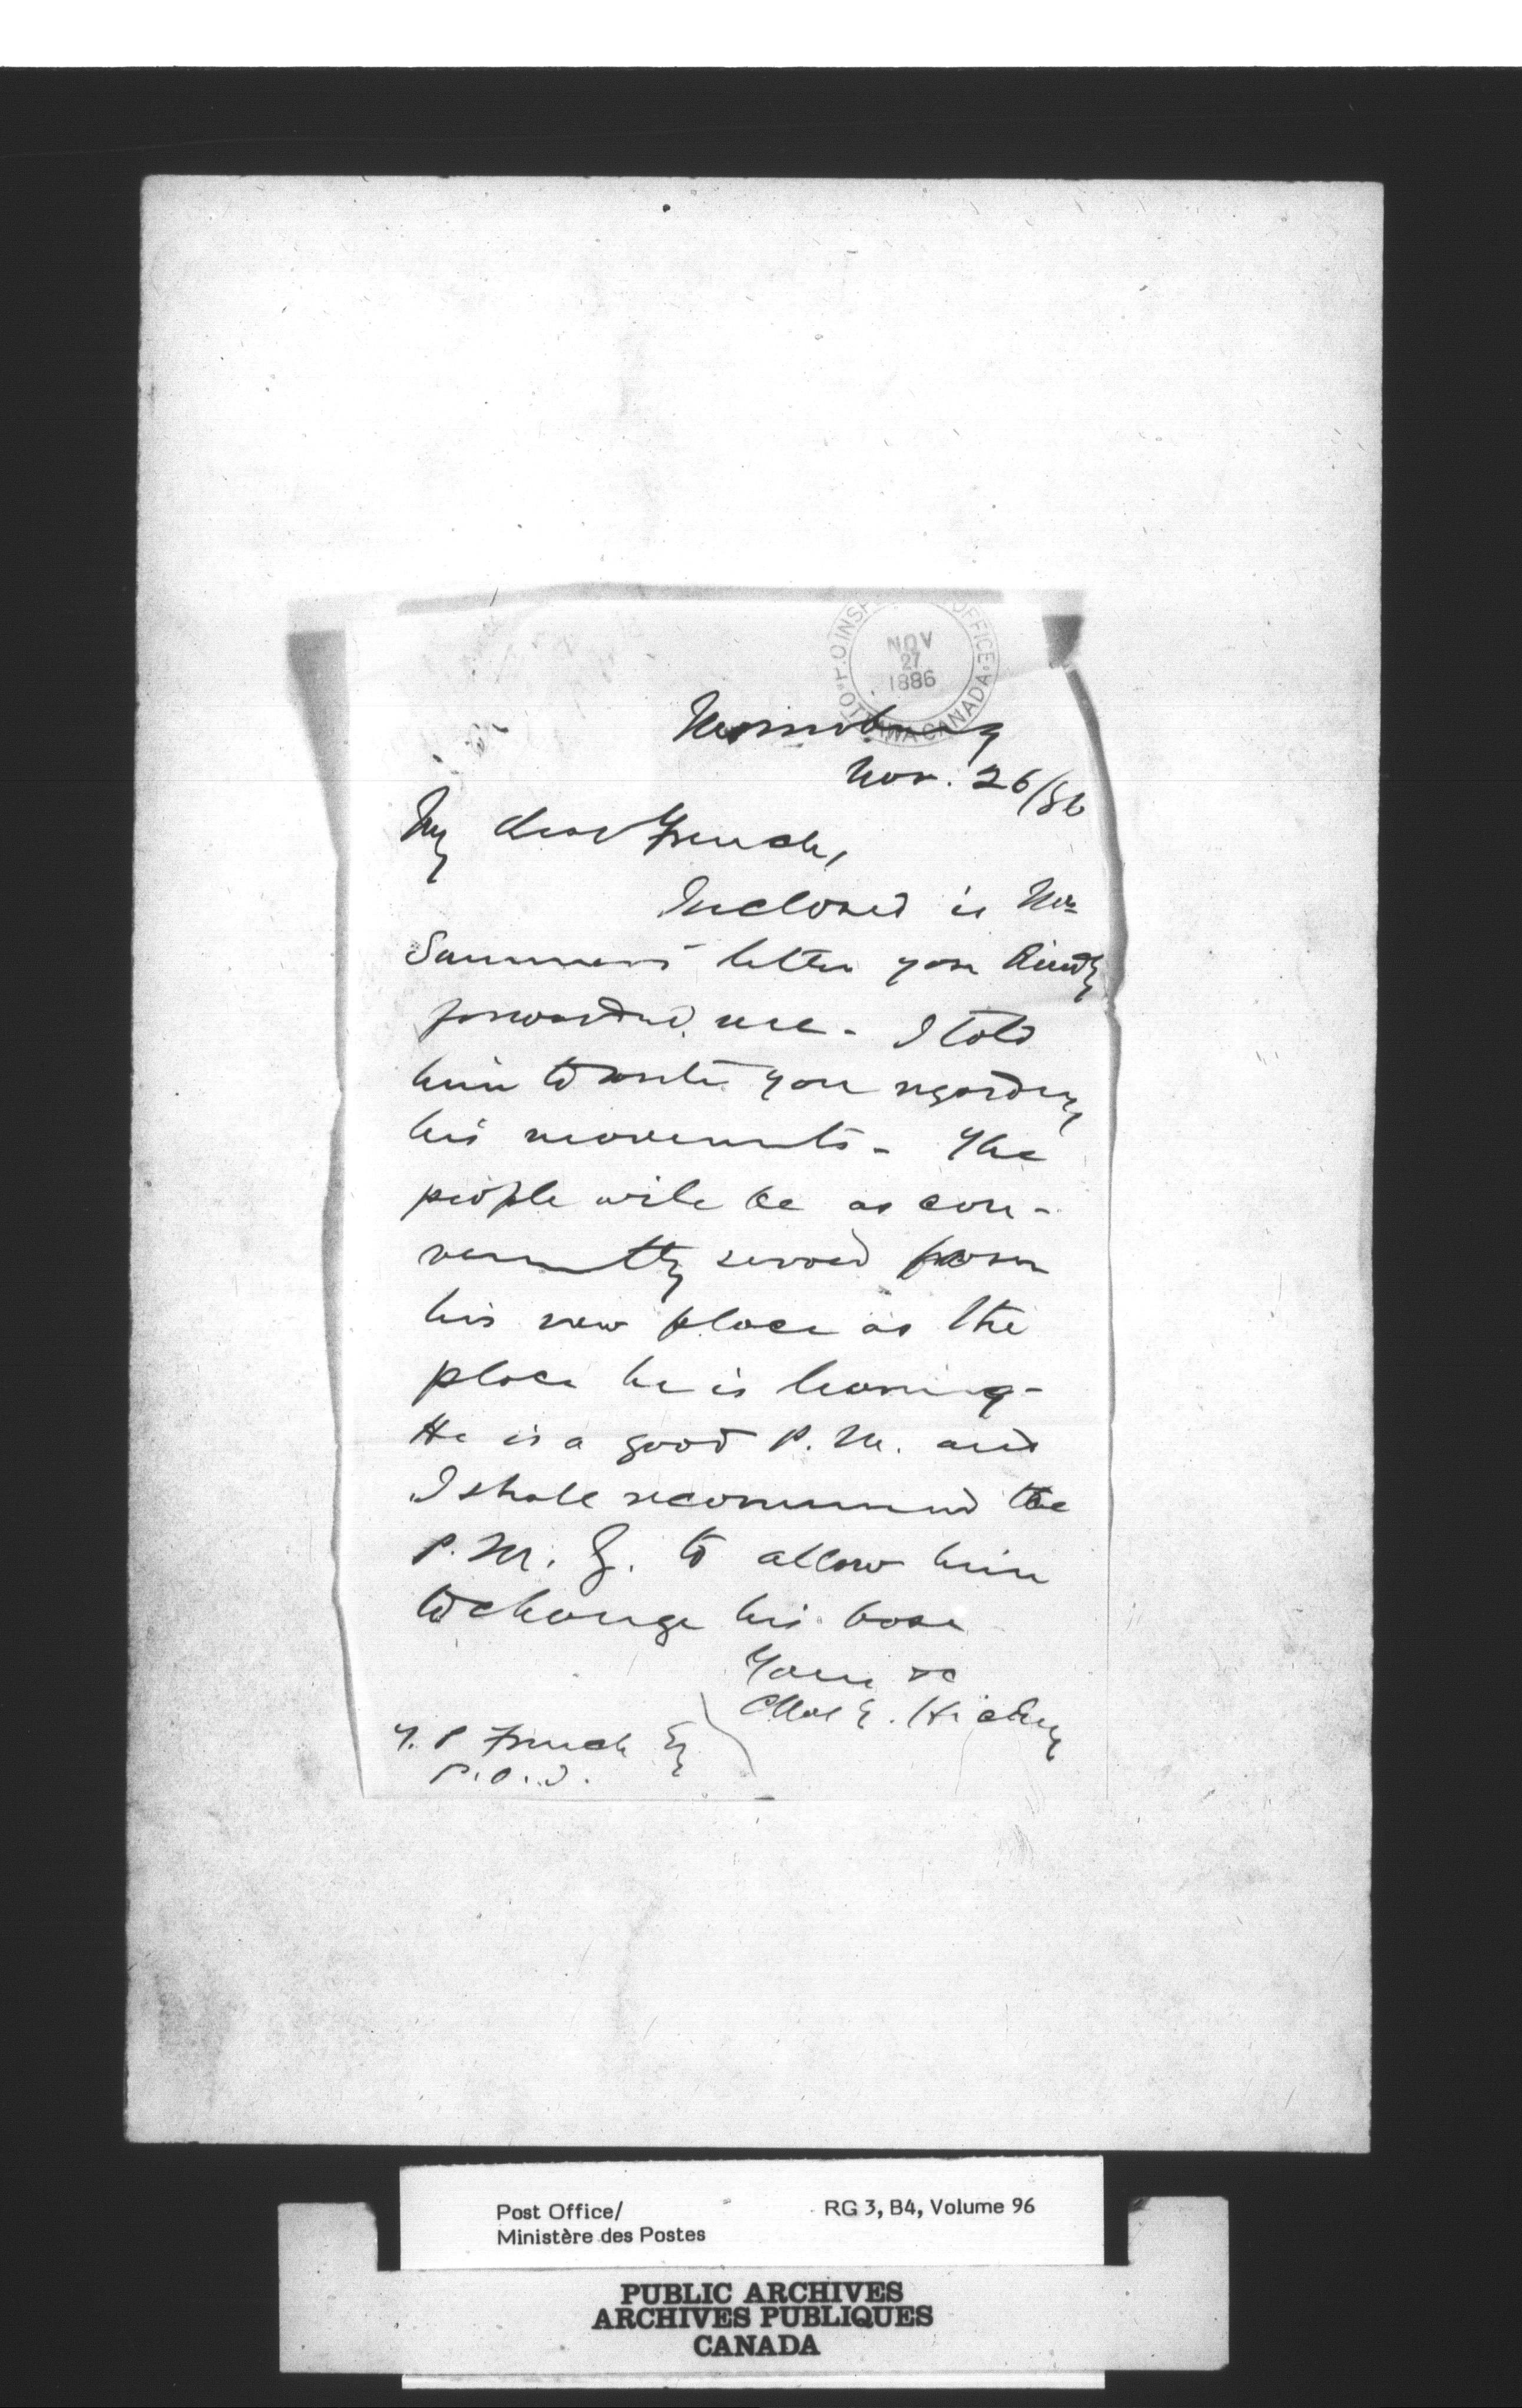 P.O INSP OFFICE
NOV
27
1886
OTTAWA CANADA
Morrisburg
Nov. 26/86
My dear French,
Inclosed is Mr
Summers' letter you kindly
forwarded me - I told
him to write you regarding
his movements - The
people will be as con-
veniently served from
his new place as the
place he is leaving -
He is a good P. M. and
I shall recommend the
P. M. G. to allow him
to change his base
Yours &c
Chas E. Hickey
T. P French Esq
P. O. I.
Post Office/
Ministère des Postes
RG 3, B4, Volume 96
PUBLIC ARCHIVES
ARCHIVES PUBLIQUES
CANADA